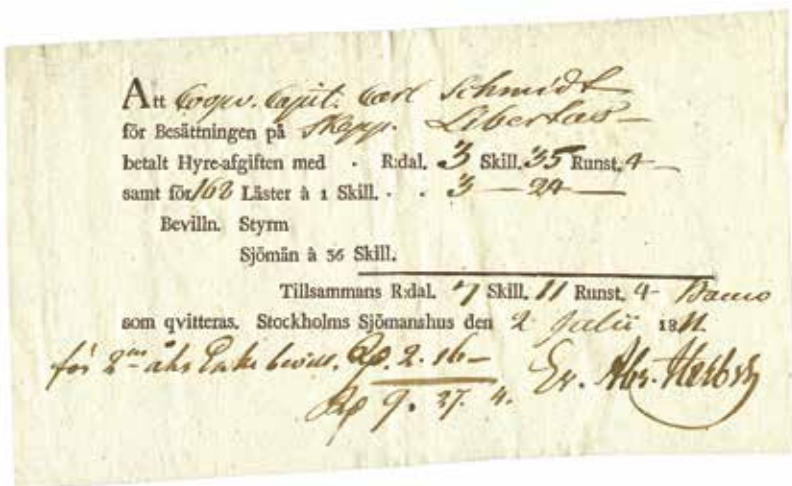 Att Coopv. Capit. Carl Schmidt
för Besättningen på Skepp. Libertas —
betalt Hyre-afgiften med . R:dal. 3 Skill. 35 Runst. 4 —
samt för 168 Läster à 1 Skill. . . 3 — 24 —
Bevilln. Styrm
Sjömän à 36 Skill.
Tillsammans R:dal. 7 Skill. 11 Runst. 4 - Banco
som qvitteras. Stockholms Sjömanshus den 2 Julii 1811.
för 2 års 2. 16 —
9. 27. 4.